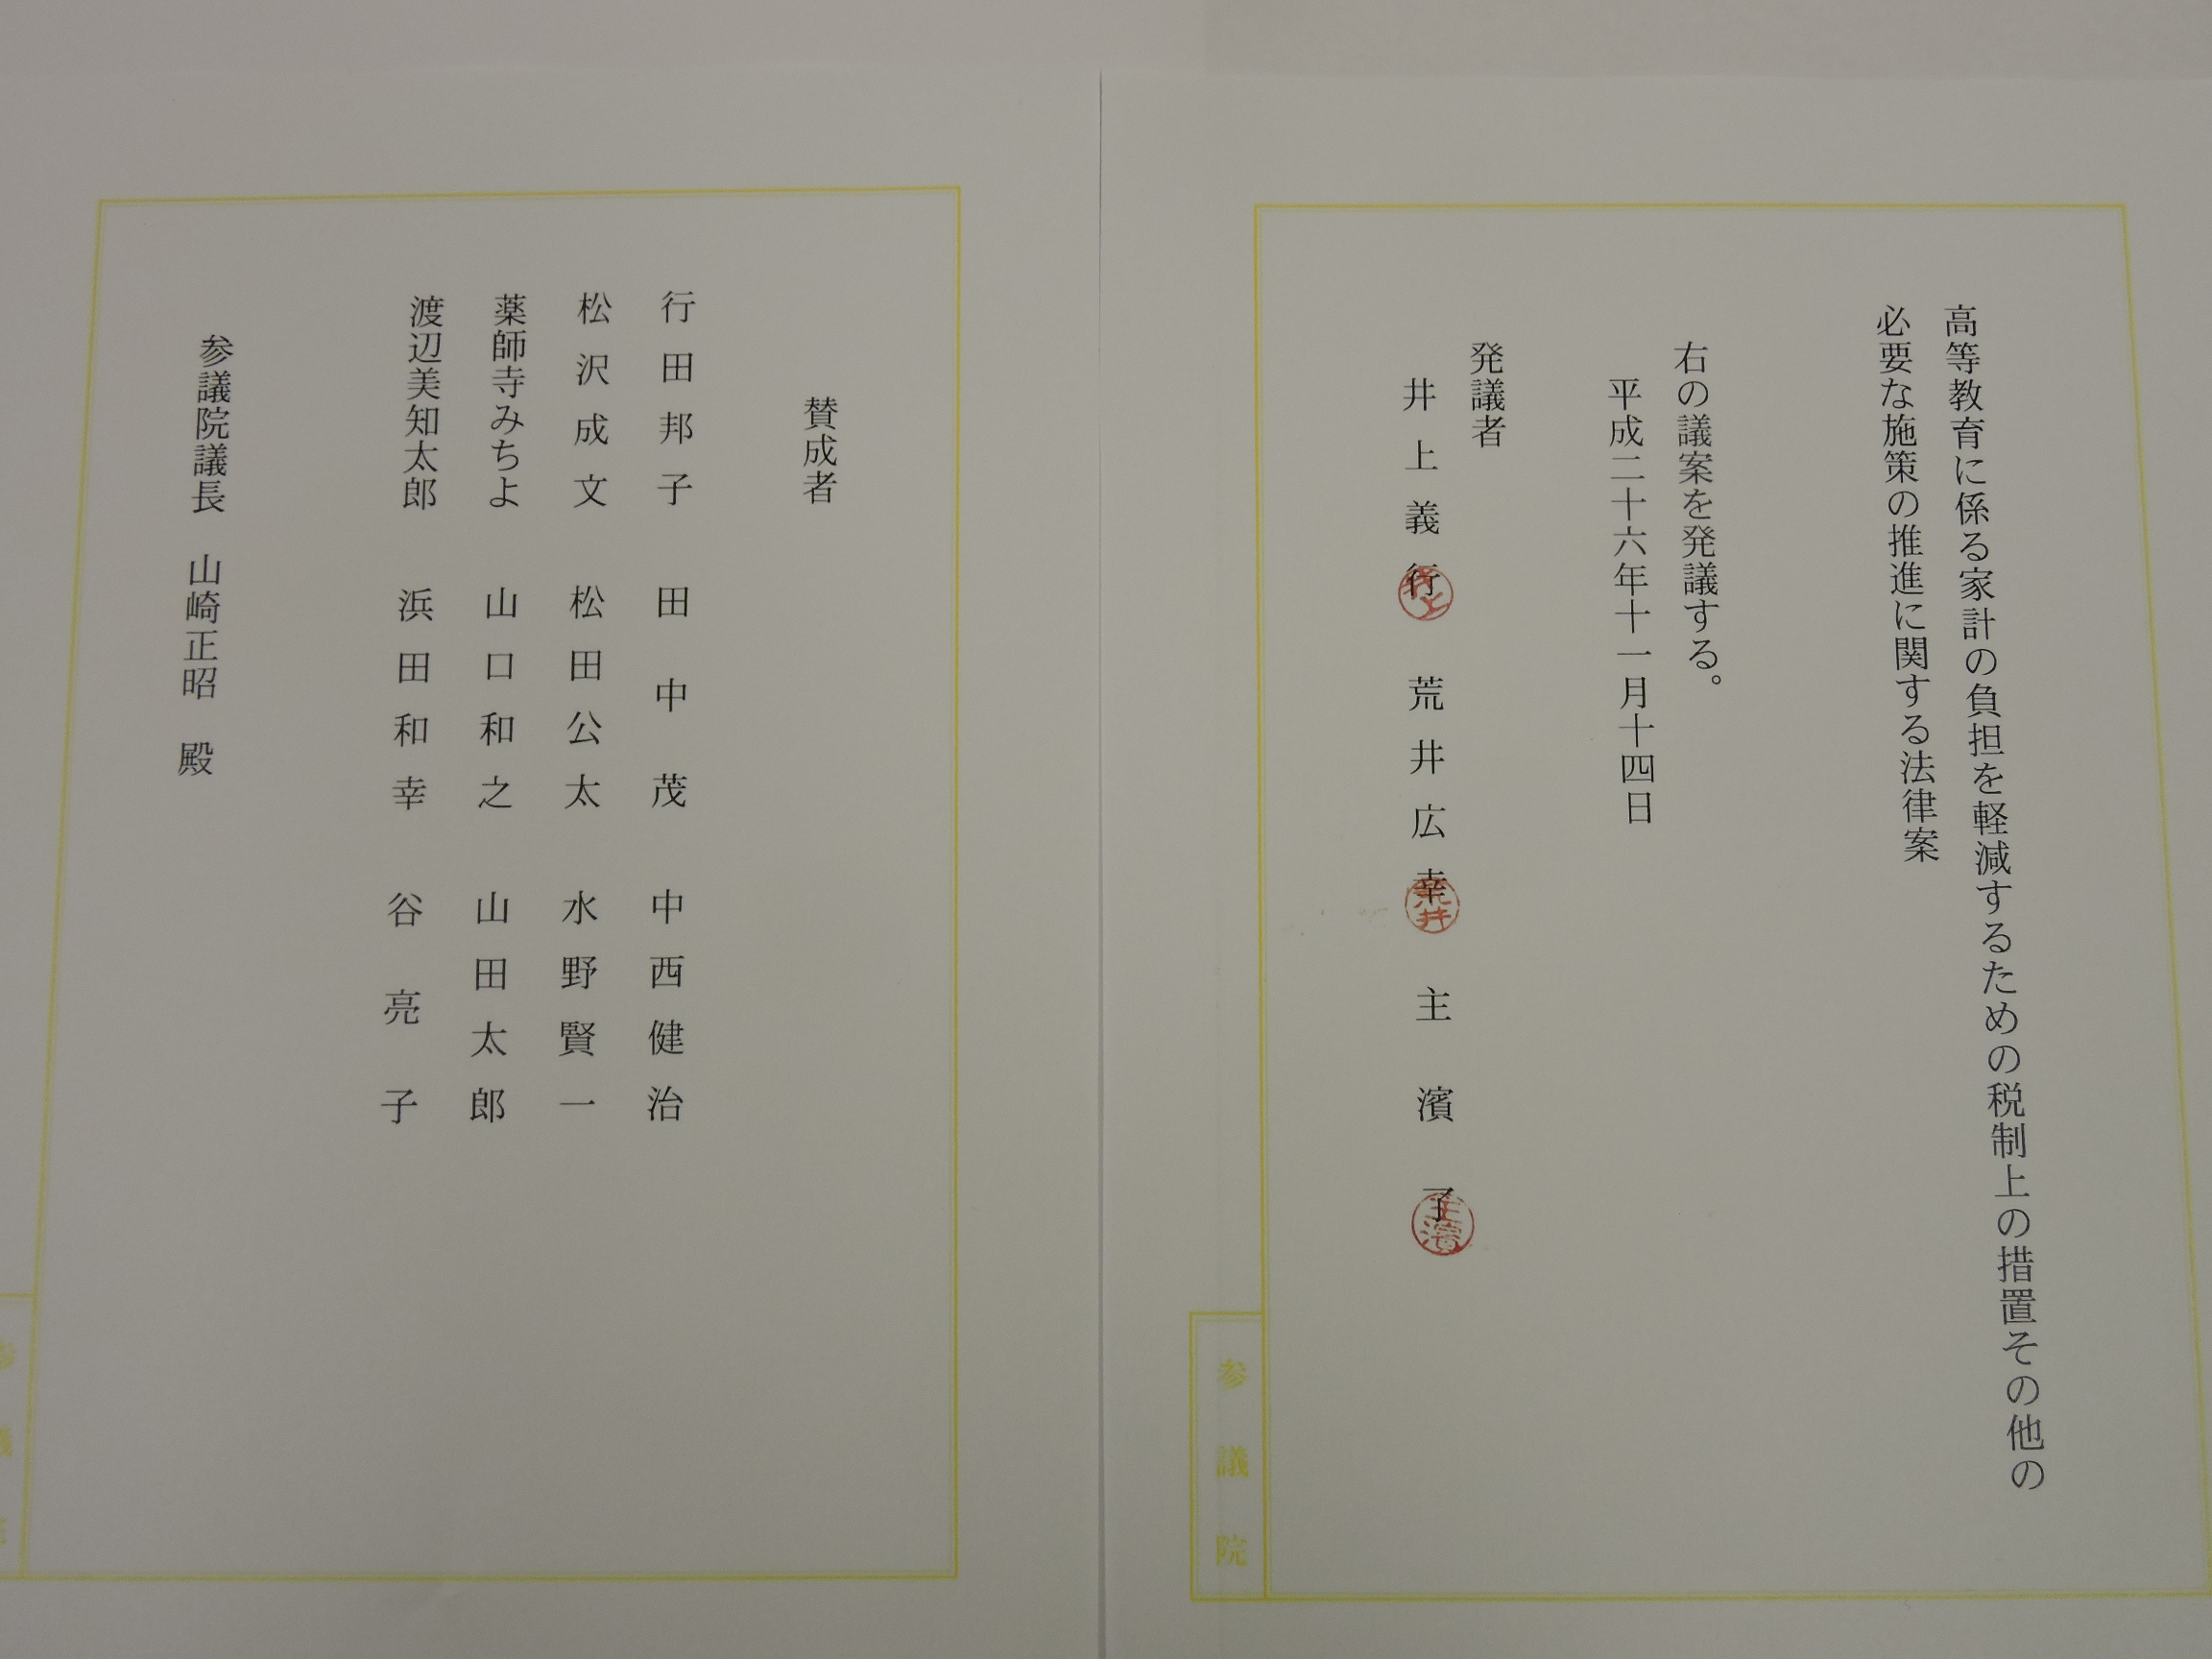 高等教育に係る家計の負担を軽減するための税制上の措置その他の
必要な施策の推進に関する法律案
右の議案を発議する。
平成二十六年十一月十四日
発議者
井上義行 荒井広幸 主濱了
井上
荒井
主濱
参議院
賛成者
行田邦子 田中茂 中西健治
松沢成文 松田公太 水野賢一
薬師寺みちよ 山口和之 山田太郎
渡辺美知太郎 浜田和幸 谷亮子
参議院議長 山崎正昭 殿
参議院